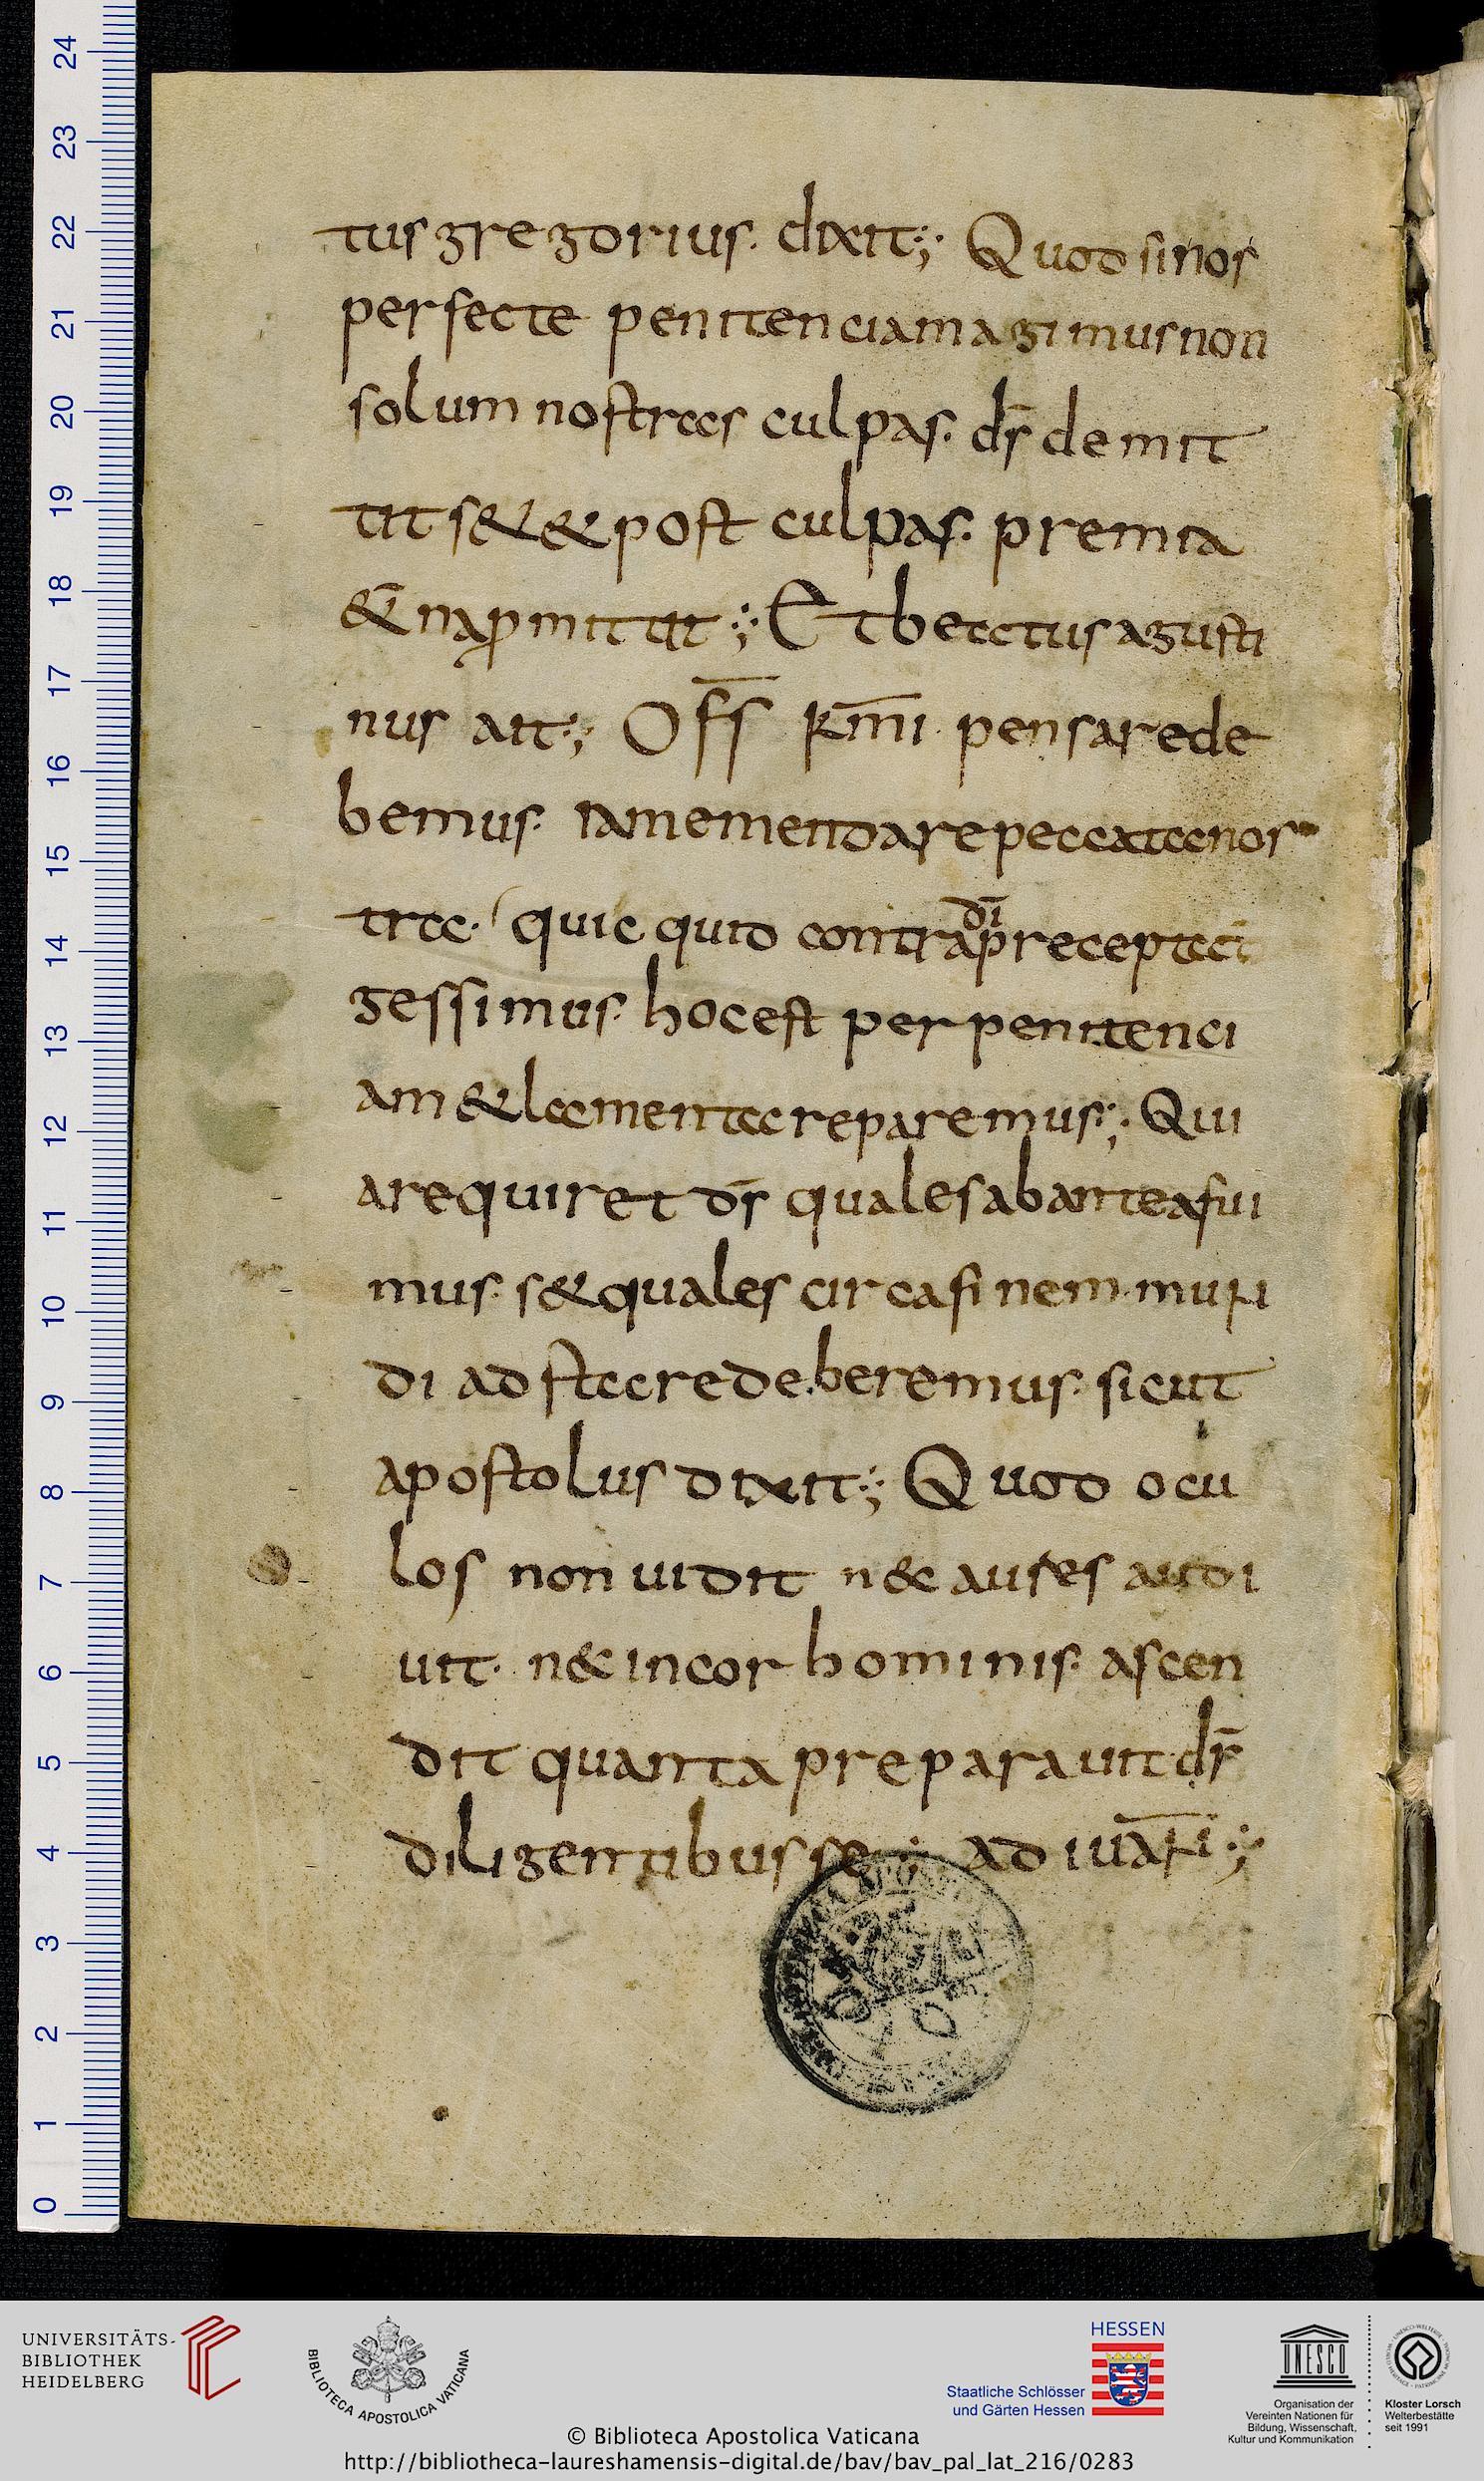 tus gregorius. dixit:; Quod si nos
perfecte penitenciam agimus non
solum nostras culpas. d̄s demit
tit s& & post culpas. premia
&̄nap̄mittit:; Et beatus agusti
nus ait:; O f̄s̄ k̄m̄i pensare de
bemus. iam emendare peccata nos
tra. quic quid contra d̄i precepta
gessimus. hoc est per penitenci
am & lamenta reparemus:; Qui
a requiret d̄s quales ab antea fui
mus. s& quales circa finem mun
di ad stare deberemus. sicut
apostolus dixit:; Quod ocu
los non uidit n&c aures audi
uit. n&c in cor hominis. ascen
dit quanta preparauit d̄s
diligentibus se:; ad iuūan̄i:;
24
23
22
21
20
19
18
17
16
15
14
13
12
11
10
9
8
7
6
5
4
3
2
1
0
UNIVERSITÄTS-
BIBLIOTHEK
HEIDELBERG
BIBLIOTECA APOSTOLICA VATICANA
HESSEN
Staatliche Schlösser
und Gärten Hessen
UNESCO
Organisation der
Vereinten Nationen für
Bildung, Wissenschaft,
Kultur und Kommunikation
Kloster Lorsch
Welterbestätte
seit 1991
© Biblioteca Apostolica Vaticana
http://bibliotheca-laureshamensis-digital.de/bav/bav_pal_lat_216/0283